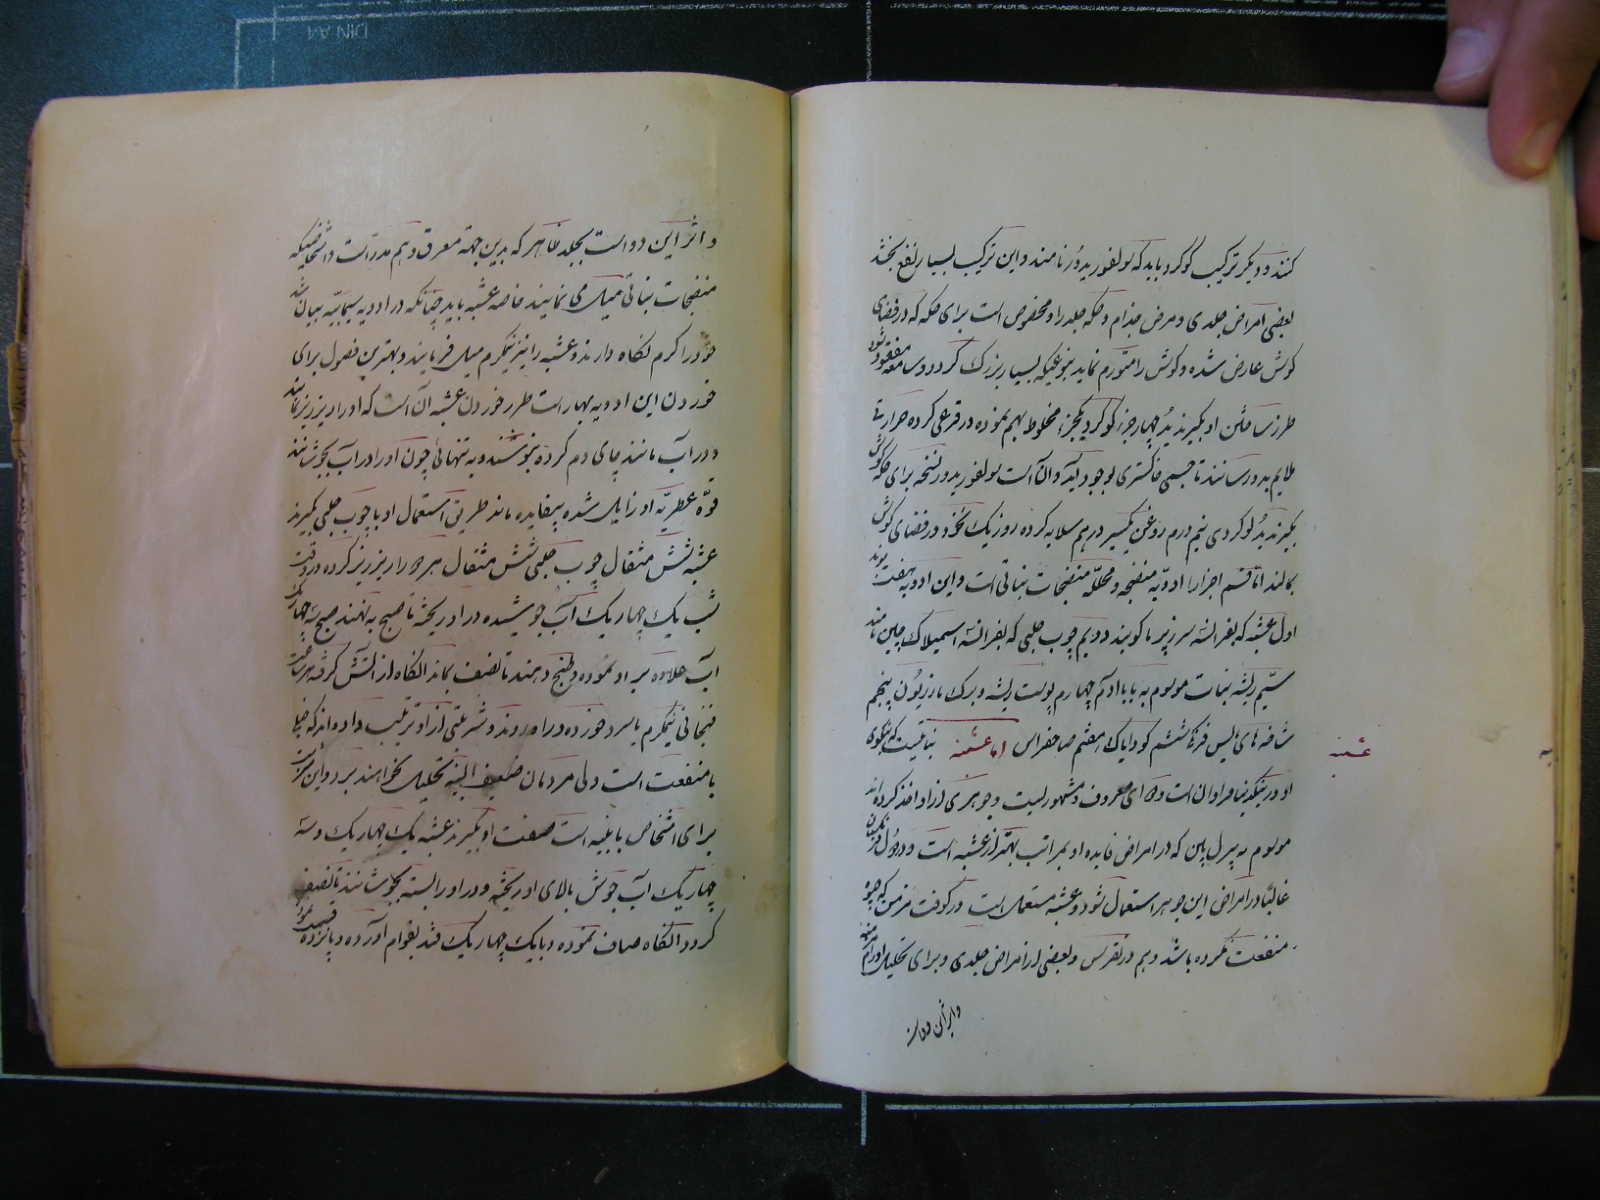 کنند و دیگر ترکیب گوگرد باید که سولفور یدور نامند و این ترکیب بسیار نفع بخشد
بعضی امراض جلدی و مرض جذام و حکه جلد را و مخصوص است برای حکه که در فضای
گوش عارض شده و گوش را متورم نماید بنوعیکه بسیار بزرگ گردد و سامعه مفقود شود
طرز ساختن او بگیرند ید چهار جزء گوگرد یکجزء مخلوط بهم نموده در قرعی کرده حرارتی
ملایم بدو رسانند تا جسمی خاکستری بوجود آید و آن است سولفور یدور نسخه برای حکه گوش
بگیرند ید گوگردی نیم درم روغن یکسیر درهم سلایه کرده روز یک نخود در فضای گوش
بمالند اما قسم اجزا را ادویه منضجه و محلله منضجات نباتی است و این ادویه هفت بوند
اول عشبه که بفرانسه سرزپریا کویند دویم چوب چینی که بفرانسه اسمیلاک چین نامند
سیم ریشه نبات موسوم به بابا آدم چهارم پوست ریشه و برک مازریون پنجم
شاخه های لیس فرنگی ششم کودایاک هفتم صاصفراس اما عشبه نباتیست که نیکوی
عشبه
او در ینگه دنیا فراوان است و دوای معروف و مشهوریست و جوهری از او اخذ کرده اند
موسوم به پرل پاین که در امراض فایده او بمراتب بهتر از عشبه است و در
غالبا در امراض این جوهر استعمال شود و عشبه مستعمل است در کوفت مزمن که جیوه
منفعت نکرده باشد و هم در نقرس و بعضی از امراض جلدی و برای تحلیل اورام
و اثر این دواست
و اثر این دواست بجلد ظاهر که بدین جهة معرق و هم مدر است و اشخاصیکه
منضجات نباتی میل می نمایند خاصه عشبه باید چنانکه در ادویه سیمابیه بیان شد
خود را گرم نگاه دارند و عشبه را نیز نیمگرم میل فرمایند و بهترین فصول برای
خوردن این ادویه بهار است طرز خوردن عشبه آن است که او را ریز ریز نمایند
و در آب مانند چای دم کرده بنوشند و به تنهائی چون او را در آب بجوشانند
قوّه عطریّه او زایل شده بیفایده ماند طریق استعمال او با چوب چینی بگیرند
عشبه شش مثقال چوب چینی شش مثقال هر دو را ریز ریز کرده در وقت
شب یک چهار یک آب جوشیده در او ریخته تا صبح به نهند صبح سه چهار یک
آب علاوه بر او نموده و طبخ دهند تا نصف بماند آنگاه از آتش گرفته هر ساعت
فنجانی نیمگرم یا سرد خورده در راه روند و شربتی از او ترتیب داده اند که خیلی
با منفعت است ولی مردمان ضعیف البنیه تحلیل نخواهند برد و این شربت
برای اشخاص با بنیه است صنعت او بگیرند عشبه یک چهار یک و سه
چهار یک آب جوش بالای او ریخته و در او را بسته بجوشانند تا نصف
گردد آنگاه صاف نموده و با یک چهار یک قند بقوام آورده و پانزده